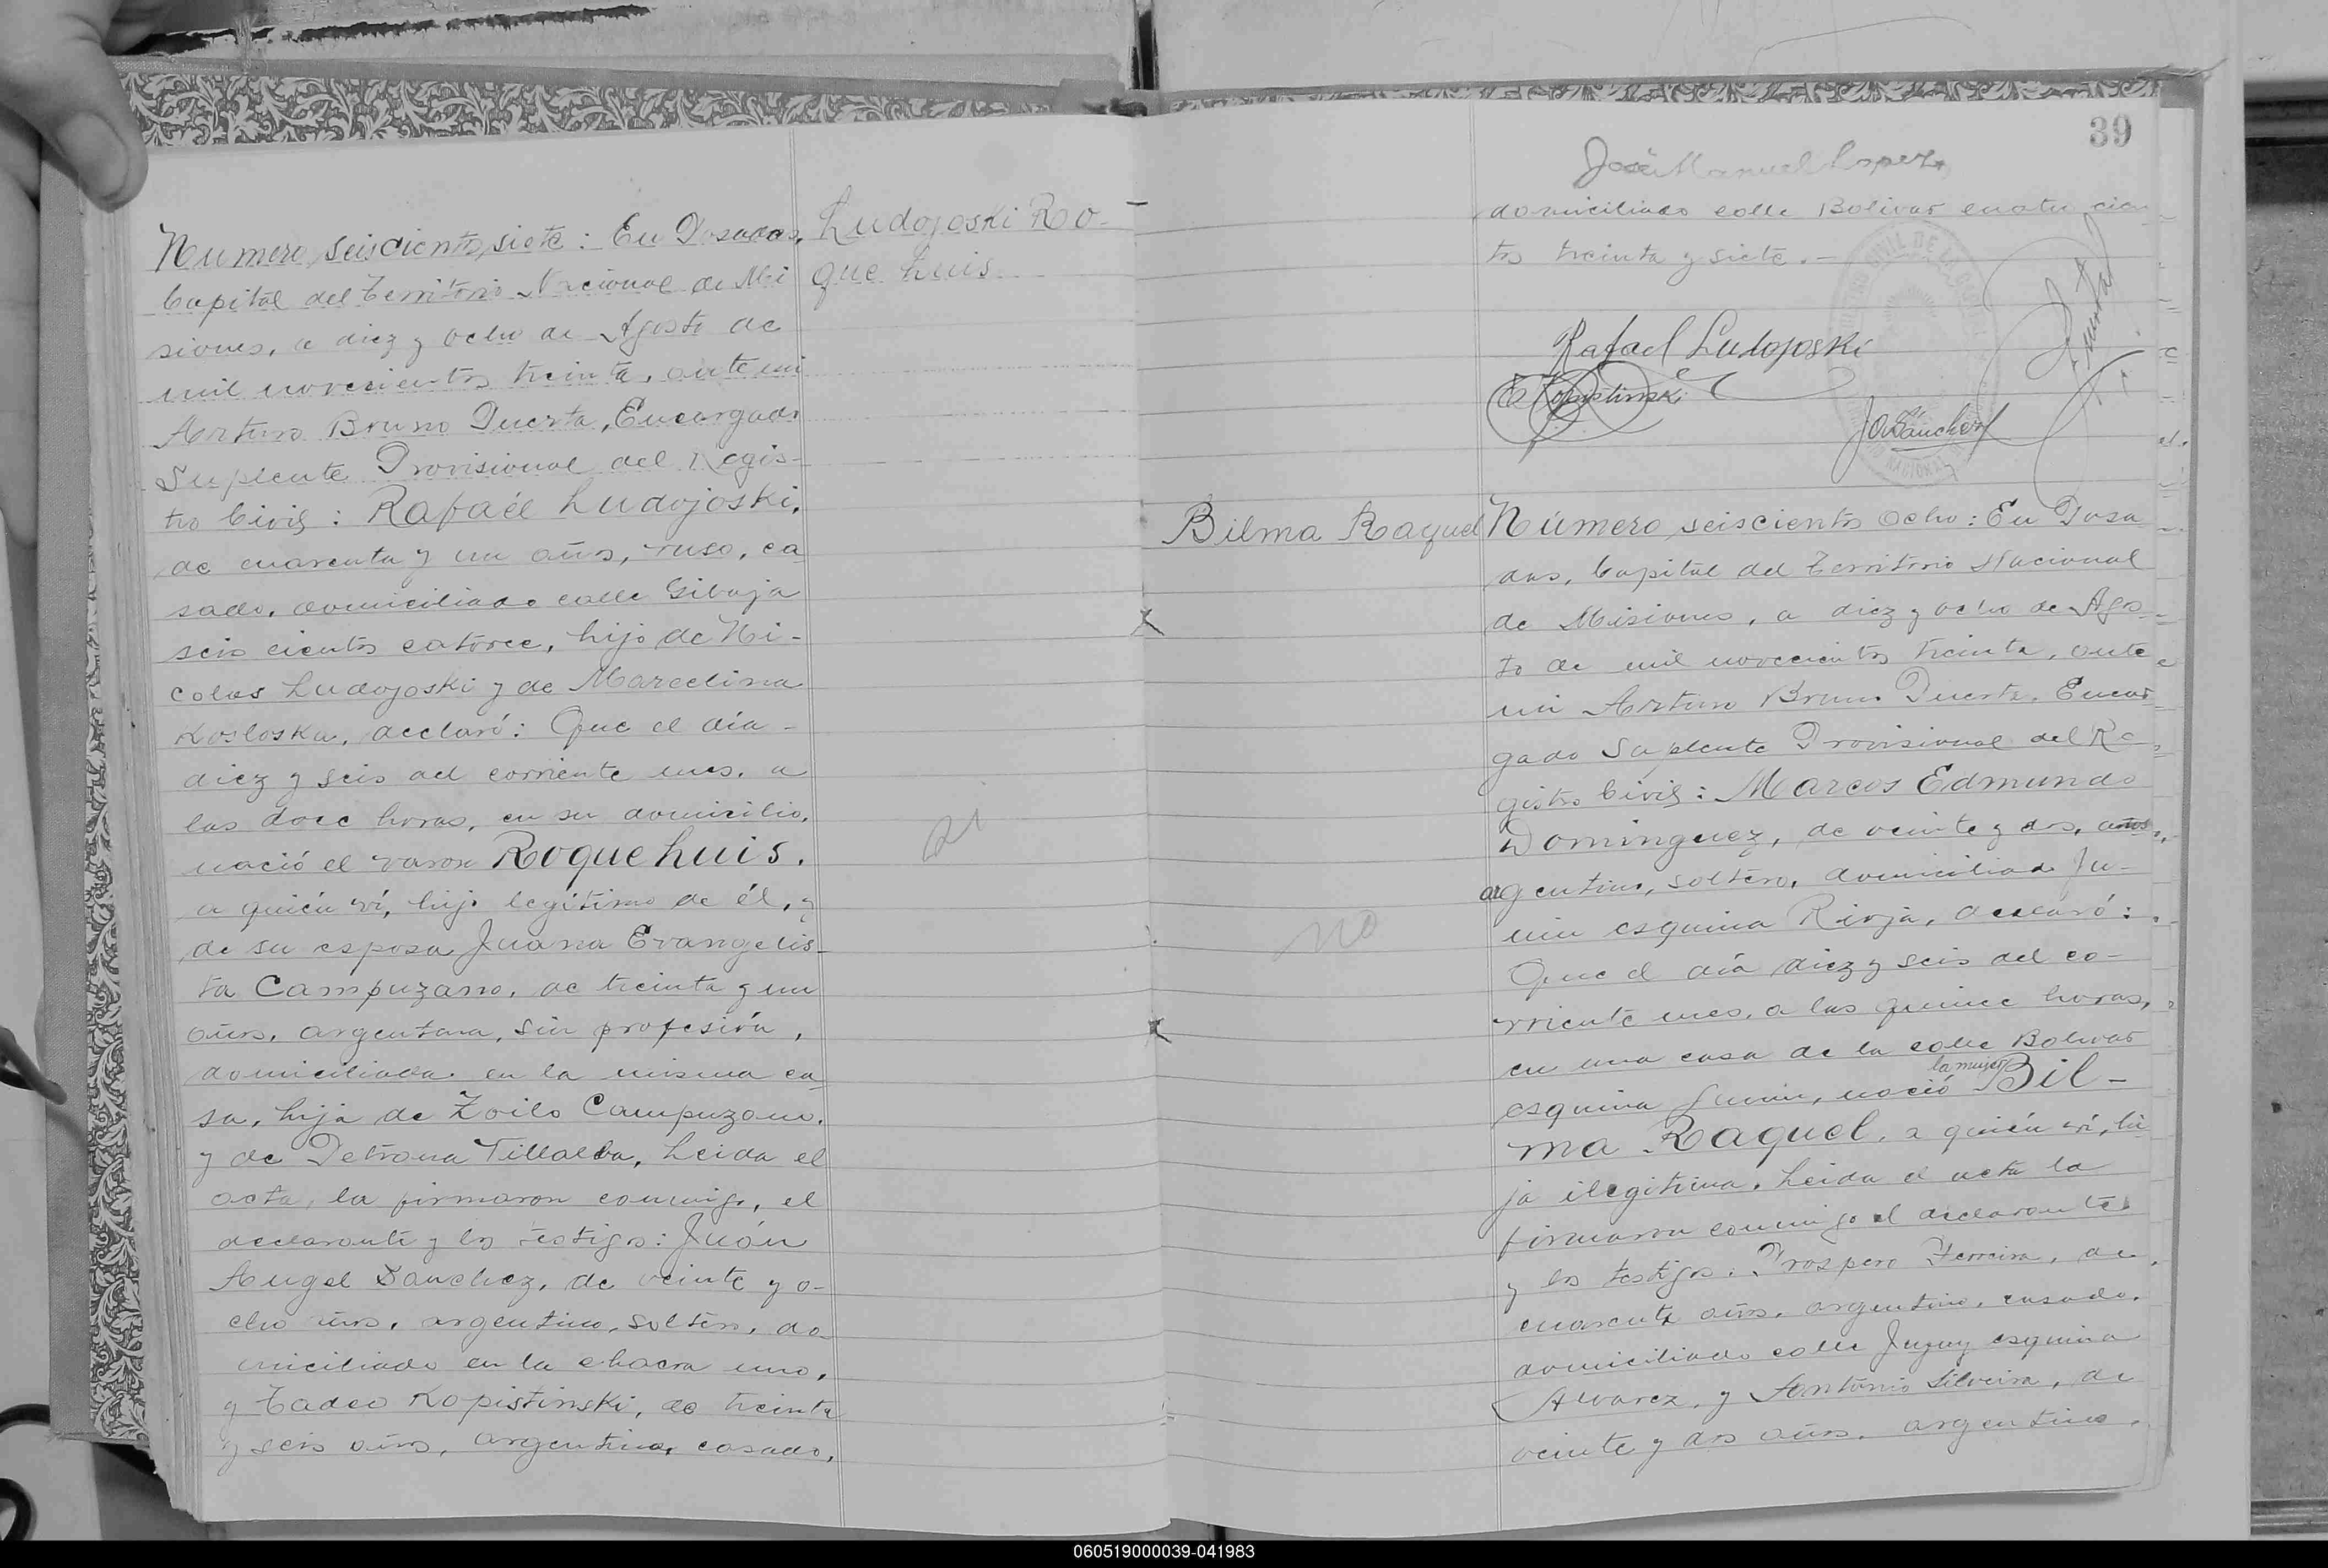 Numero seiscientos siete: En Posadas,
Capital del Territorio Nacional de Mi
siones, a diez y ocho de Agosto de
mil novecientos treinta, ante mi
Arturo Bruno Duerta, Encargado
Suplente Provisional del Regis-
tro Civil: Rafaél Ludojoski,
de cuarenta y un años, ruso, ca
sado, domiciliado calle Gibaja
seis cientos catorce, hijo de Ni-
colas Ludojoski y de Marcelina
Kosloska, declaró: Que el día
diez y seis del corriente mes, a
las doce horas, en su domicilio,
nació el varon Roque Luis,
a quién ví, hijo legítimo de él, y
de su esposa Juana Evangelis-
ta Campuzano, de treinta y un
años, argentina, sin profesión,
domiciliada en la misma ca
sa, hija de Zoilo Campuzano,
y de Petrona Villalba, Leida el
acta, la firmaron conmigo, el
declarante y los testigos: Juán
Angel Sanchez, de veinte y o-
cho años, argentino, soltero, do
miciliado en la chacra uno,
y Tadeo Kopistinski, de treinta
y seis años, argentino, casado,
Ludojoski Ro-
que Luis
si
39
José Manuel Lopez
domiciliado calle Bolivar cuatro cien
tos treinta y siete.-
Rafael Ludojoski
Kopistinski
JASanchez
Bilma Raquel
no
Número seiscientos ocho: En Posa
das, Capital del Territorio Nacional
de Misiones, a diez y ocho de Agos-
to de mil novecientos treinta, ante
mi Arturo Bruno Duerta, Encar
gado Suplente Provisional del Re-
gistro Civil: Marcos Edmundo
Dominguez, de veinte y dos, años,
argentino, soltero, domiciliado Ju-
nin esquina Rioja, declaró:
Que el día diez y seis del co-
rriente mes, a las quince horas,
en una casa de la calle Bolivar
esquina Junin, nació la mujer Bil-
ma Raquel, a quién ví, hi
ja ilegitima, Leida el acta la
firmaron conmigo el declarante
y los testigos: Prospero Ferreira, de
cuarenta años, argentino, casado,
domiciliado calle Jujuy esquina
Alvarez, y Antonio Silveira, de
veinte y dos años, argentino,
060519000039-041983